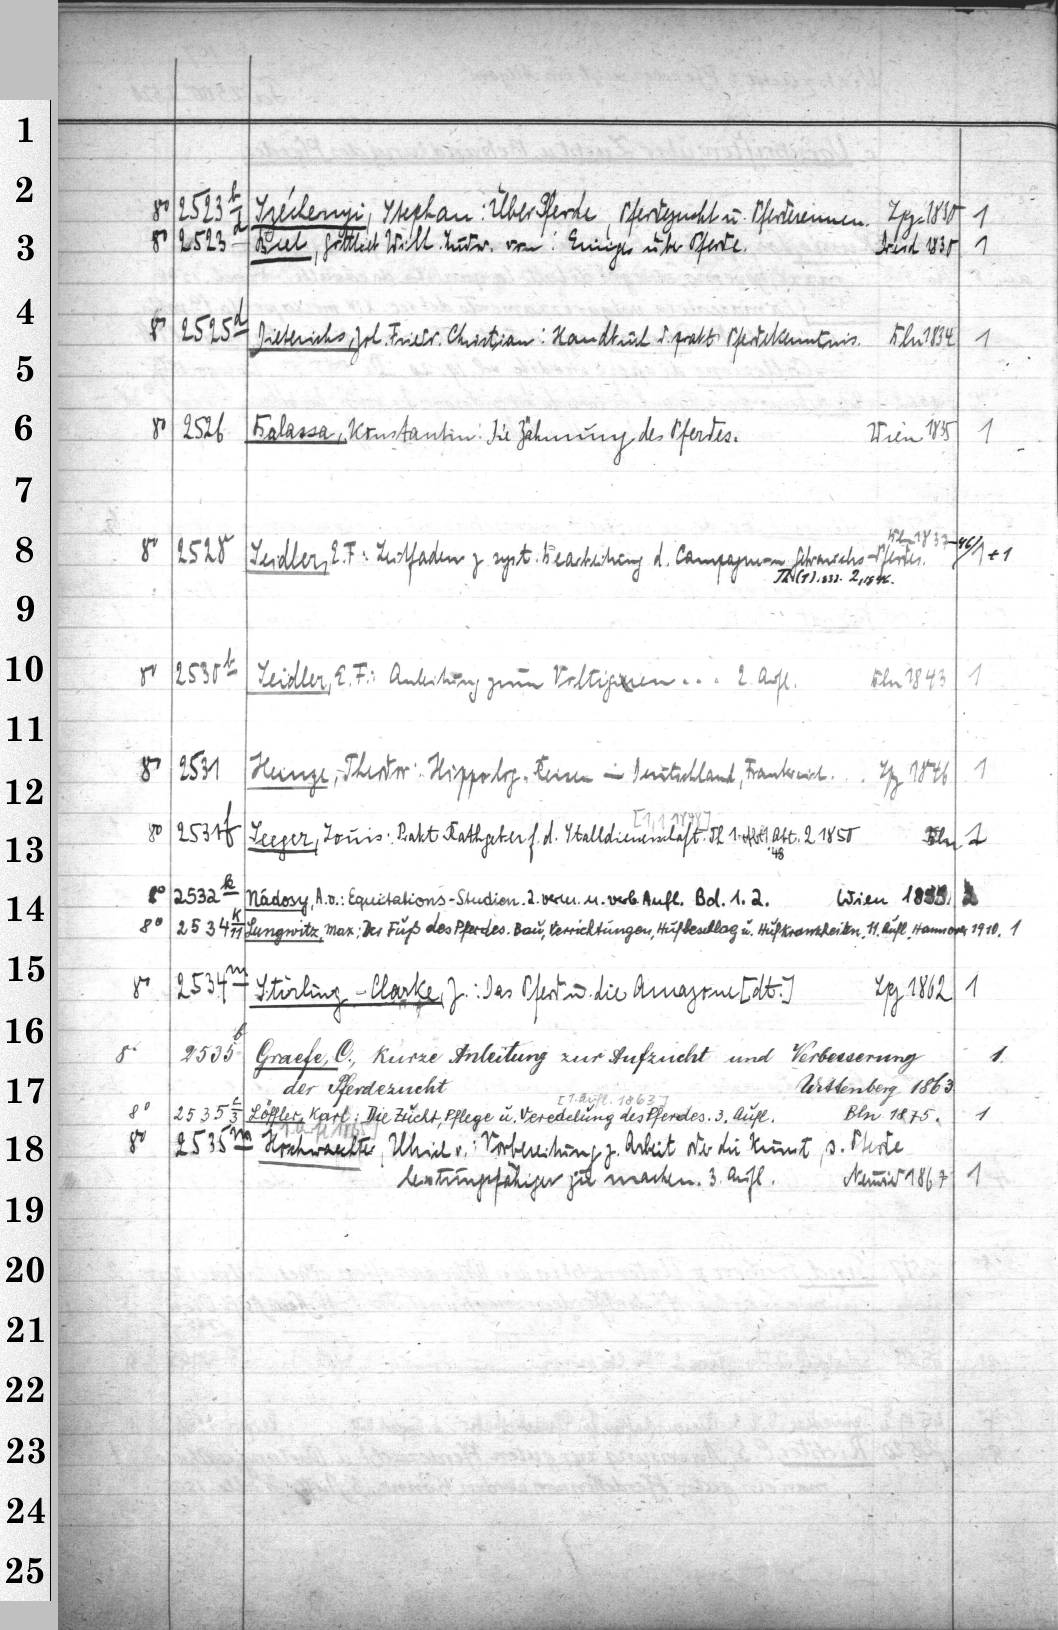 1
2
8° 2523b Széchenyi, Stephan: Über Pferde, Pferdezucht u. Pferderennen. Lpz. 1830 1
3
8° 2523d Biel, Gottlieb Wilh. Ludw. von: Einiges über Pferde. Dresd 1830 1
4
8° 2525d Dieterichs, Joh. Friedr. Christian: Handbuch d. prakt. Pferdekenntnis. Bln 1834 1
5
6
8° 2526 Balassa, Konstantin: Die Zähmung des Pferdes. Wien 1835 1
7
Bln 1837-46
8
8° 2528 Seidler, E. F.: Leitfaden z. syst. Bearbeitung d. Campagne- u. Gebrauchs-Pferdes. 1+1
2, 1846.
9
10
8° 2530b Seidler, E. F.: Anleitung zum Voltigieren... 2. Aufl. Bln 1843 1
11
8° 2531 Heinze, Theodor: Hippolog. Reisen in Deutschland, Frankreich... Lpz 1846 1
12
13
8° 2531f Seeger, Louis: Prakt. Rathgeber f. d. Stalldienerschaft. Th 1. Abt. 2 1850 Bln 2
48
8° 2532k Nádosy, A. v.: Equitations-Studien. 2. verm. u. verb. Aufl. Bd. 1. 2. Wien 1855.
14
8° 2534k/11 Lungwitz, Max: Der Fuß des Pferdes. Bau, Verrichtungen, Hufbeschlag u. Hufkrankheiten. 11. Aufl. Hannover 1910. 1
15
8° 2534m Stirling-Clarke, J.: Das Pferd u. die Amazone [dt.] Lpz 1862 1
16
8° 2535b Graefe, C., Kurze Anleitung zur Aufzucht und Verbesserung 1.
17
der Pferdezucht Wittenberg 1863
[1. Aufl. 1863]
8° 2535c/3 Löffler, Karl: Die Zucht, Pflege u. Veredelung des Pferdes. 3. Aufl. Bln 1875. 1
18
8° 2535m Hochwaechter, Ulrich v.: Vorbereitung z. Arbeit oder die Kunst, s. Pferde
leistungsfähiger zu machen. 3. Aufl. Neuwied 1867 1
19
20
21
22
23
24
25